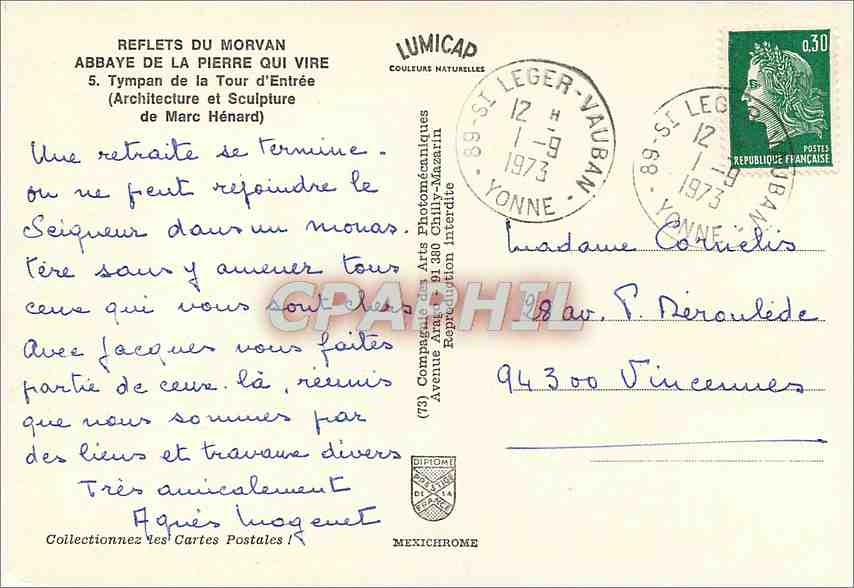 REFLETS DU MORVAN
ABBAYE DE LA PIERRE QUI VIRE
5. Tympan de la Tour d'Entrée
(Architecture et Sculpture
de Marc Hénard)
Une retraite se termine.
on ne peut rejoindre le
Seigneur dans un monas.
tère sans y amener tous
ceux qui vous sont chers
Avec Jacques vous faites
partie de ceux-là, réunis
que nous sommes par
des liens et travaux divers
Très amicalement
Agnès Mogenet
Collectionnez les Cartes Postales !
LUMICAP
COULEURS NATURELLES
(73) Compagnie des Arts Photomécaniques
Avenue Arago - 91 380 Chilly-Mazarin
Reproduction interdite
DIPLOME
PRESTIGE
DE LA
FRANCE
MEXICHROME
89-ST LEGER-VAUBAN
12 H
1-9
1973
YONNE
89-ST LEGER-VAUBAN
12
1-9
1973
YONNE
0,30
POSTES
REPUBLIQUE FRANÇAISE
Madame Cornelis
28 av. P. Déroulède
94300 Vincennes
CPARHIL